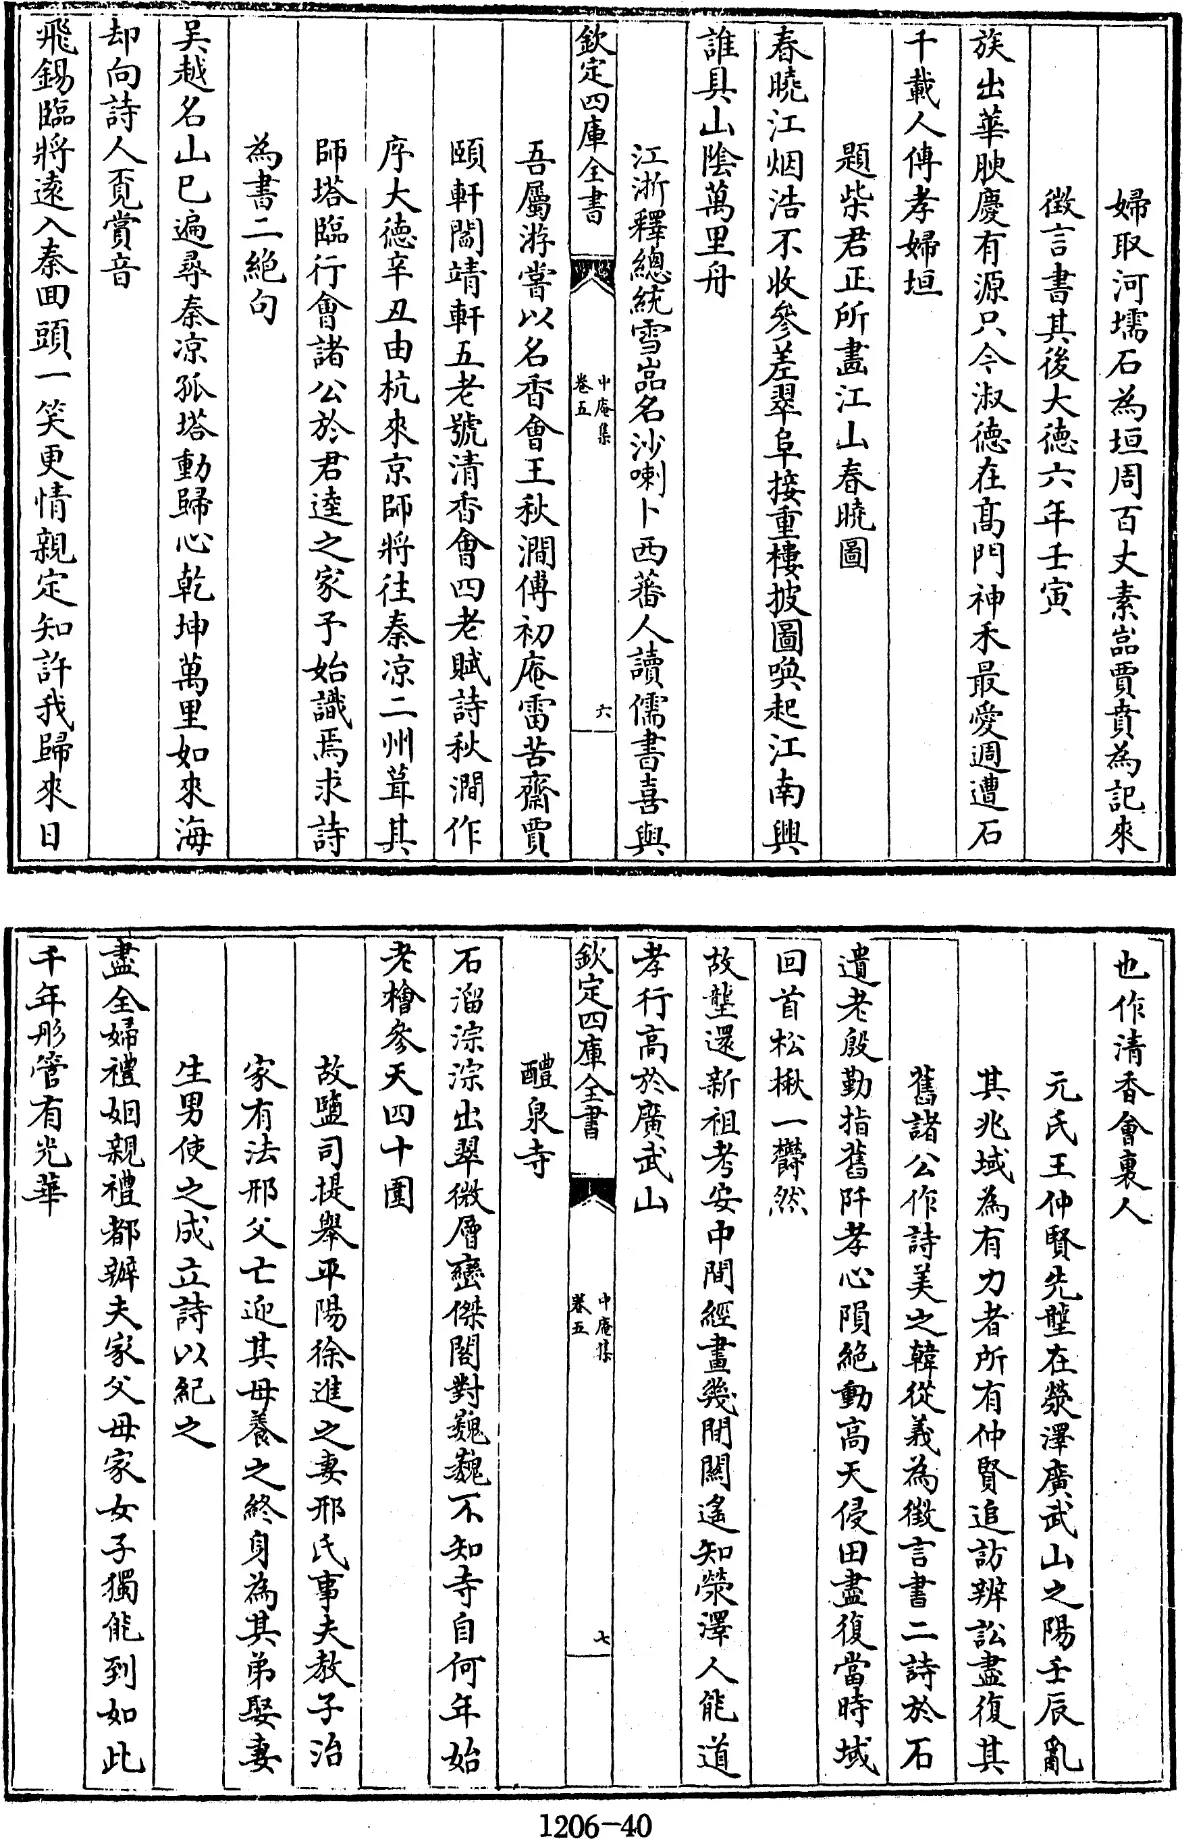 婦取河壖石為垣周百丈素嵓賈賁為記來
徴言書其後大德六年壬寅
族出華腴慶有源只今淑德在髙門神禾最愛週遭石
千載人傳孝婦垣
題柴君正所畫江山春曉圖
春曉江烟浩不收參差翠阜接重樓披圖喚起江南興
誰具山陰萬里舟
江浙釋總統雪嵓名沙喇卜西蕃人讀儒書喜與
欽定四庫全書
中庵集
卷五
六
吾屬游嘗以名香會王秋澗傅初庵雷苦齋賈
頤軒閻靖軒五老號清香會四老賦詩秋澗作
序大德辛丑由杭來京師將往秦凉二州葺其
師塔臨行會諸公於君逵之家予始識焉求詩
為書二絶句
吳越名山已遍尋秦凉孤塔動歸心乾坤萬里如來海
却向詩人覓賞音
飛錫臨將遠入秦回頭一笑更情親定知許我歸來日
也作清香會裏人
元氏王仲賢先壟在滎澤廣武山之陽壬辰亂
其兆域為有力者所有仲賢追訪辨訟盡復其
舊諸公作詩美之韓從義為徴言書二詩於石
遺老殷勤指舊阡孝心隕絶動高天侵田盡復當時域
回首松楸一欝然
故壟還新祖考安中間經畫幾間關遙知滎澤人能道
孝行高於廣武山
欽定四庫全書
中庵集
卷五
七
醴泉寺
石溜淙淙出翠微層巒傑閣對巍巍不知寺自何年始
老檜參天四十圍
故鹽司提舉平陽徐進之妻邢氏事夫教子治
家有法邢父亡迎其母養之終身為其弟娶妻
生男使之成立詩以紀之
盡全婦禮姻親禮都辦夫家父母家女子獨能到如此
千年彤管有光華
1206-40